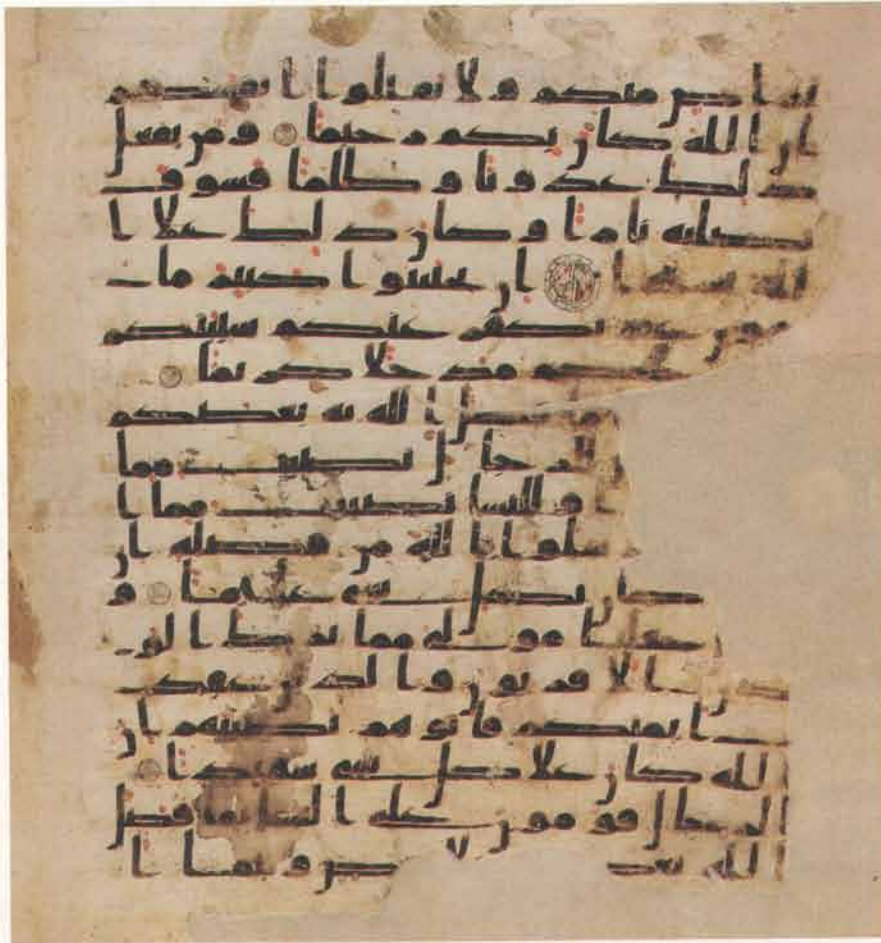 تراض منكم ولا تقتلوا انفسكم
ان الله كان بكم رحيما ومن يفعل
ذلك عدونا وظلما فسوف
نصليه نارا وكان ذلك علا ا
لله يسيرا ان تجتنبوا كبير ما
نكفر عنكم سيتكم
مدخلا كريما
ما فضل الله به بعضكم
للرجال نصيب مما
وللنسا نصيب مما ا
سلوا الله من فضله ان
كان بكل شي عليما و
جعلنا مولي مما ترك الو
الاقربون والذين عقد
ت ايمنكم فاتوهم نصيبهم ان
الله كان علا كل شي شهيدا
الرجال قومون على النسا بما فضل
الله بعـ ض وبما ا